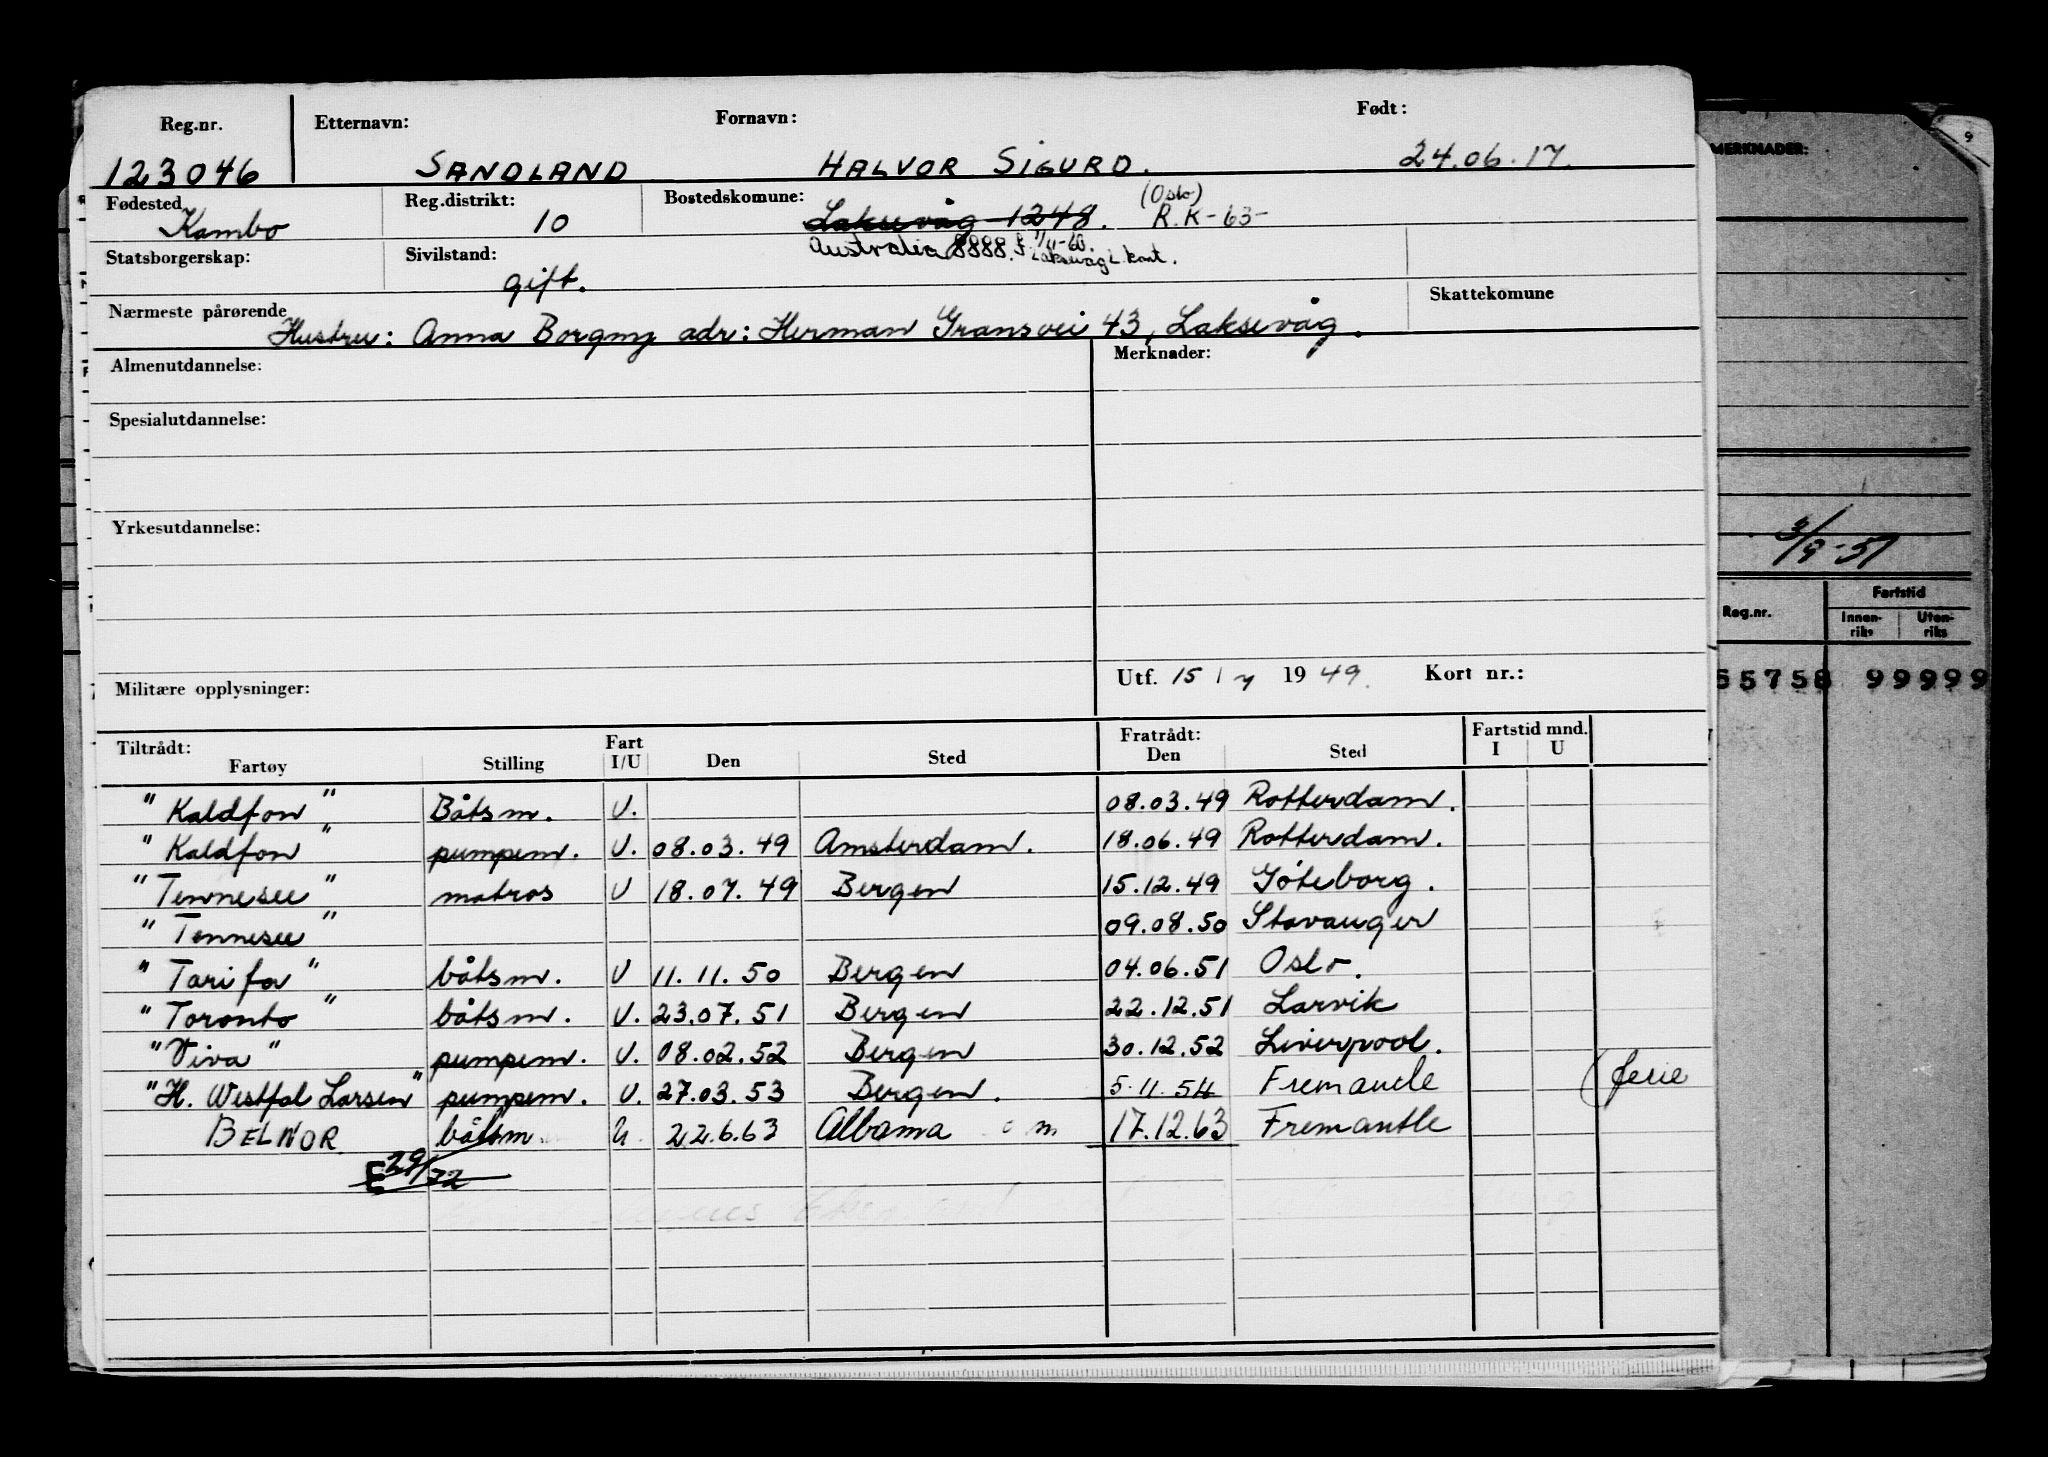 Reg.nr. Etternavn: Fornavn: Født:
123046 SANDLAND HALVOR SIGURD. 24.06.17.
Fødested Reg.distrikt: Bostedskomune: (Oslo)
Kambo 10 Laksevåg 1248. R.K-63-
Statsborgerskap: Sivilstand: Australia 8888. f. 1/11-60. Laksevåg L.kont.
gift.
Nærmeste pårørende Skattekomune
Hustru: Anna Borgny adr: Herman Gransvei 43, Laksevåg.
Almenutdannelse: Merknader:
Spesialutdannelse:
Yrkesutdannelse:
Militære opplysninger: Utf. 15/7 1949. Kort nr.:
Tiltrådt: Fart Fratrådt: Fartstid mnd.
Fartøy Stilling I/U Den Sted Den Sted I U
"Kaldfon" Båtsm. U. 08.03.49 Rotterdam.
"Kaldfon" pumpem. U. 08.03.49 Amsterdam. 18.06.49 Rotterdam.
"Tennesee" matros U 18.07.49 Bergen 15.12.49 Göteborg.
"Tennesee" 09.08.50 Stavanger
"Tarifa" båtsm. U 11.11.50 Bergen 04.06.51 Oslo.
"Toronto" båtsm. U. 23.07.51 Bergen 22.12.51 Larvik
"Viva" pumpem. U. 08.02.52 Bergen 30.12.52 Liverpool.
"H. Westfal Larsen" pumpem. U. 27.03.53 Bergen. 5.11.54 Fremantle (ferie
BELNOR båtsm U. 22.6.63 Albama 17.12.63 Fremantle
E 29/72
9
MERKNADER:
3/9-51
Reg.nr. Fartstid
Innen-riks Uten-riks
55758 99999